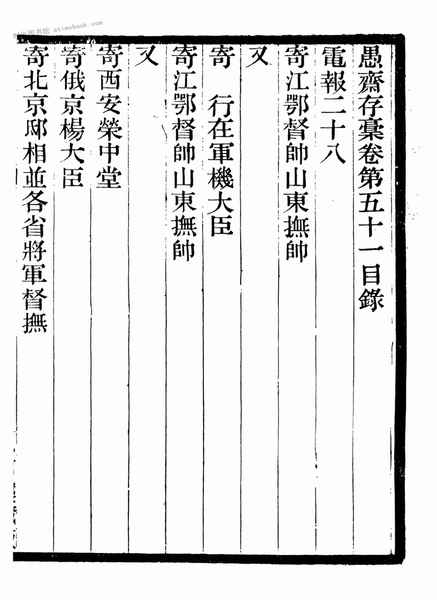 愚齋存稾卷第五十一目錄
電報二十八
寄江鄂督帥山東撫帥
又
寄　行在軍機大臣
寄江鄂督帥山東撫帥
又
寄西安榮中堂
寄俄京楊大臣
寄北京邸相並各省將軍督撫